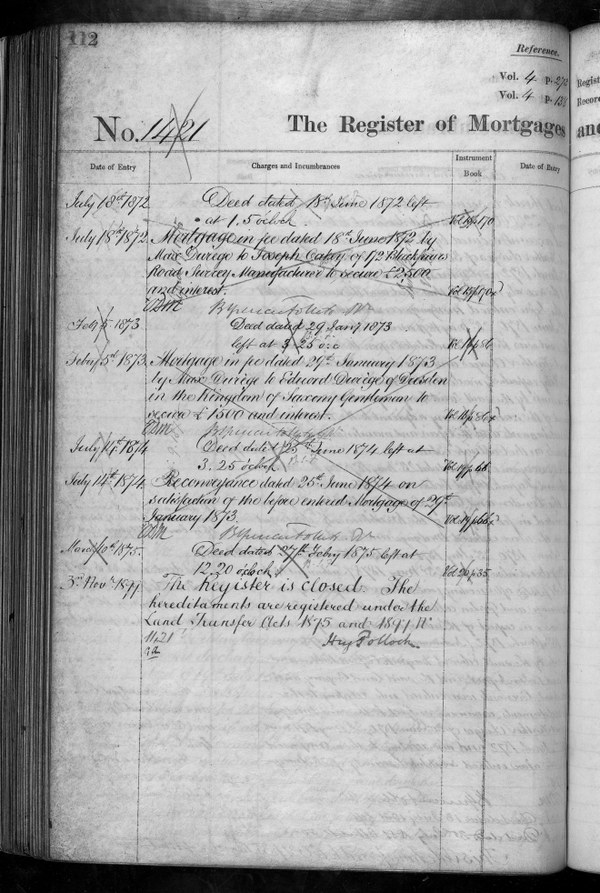 112
Reference.
Vol. 4 p. 272
Vol. 4 p. 138
No. 1421 The Register of Mortgages
Date of Entry Charges and Incumbrances Instrument Book Date of Entry
July 18th 1872 Deed dated 18th June 1872 left
at 1.5 o'clock Vol 15 p 170
July 18th 1872 Mortgage in fee dated 18th June 1872 by
Max Durège to Joseph Oakey of 172 Blackfriars
Road Surrey Manufacturer to secure £2,500
and interest. Vol. 15 p 170
Feby 5 1873 Deed dated 29 Jany 1873
left at 3.25 o'c
Feby 5th 1873. Mortgage in fee dated 29th January 1873
by Max Durège to Edward Durège of Dresden
in the Kingdom of Saxony Gentleman to
secure £1500 and interest. Vol. 16 p 86
July 14th 1874 Deed dated 25th June 1874 left at
3.25 o'clock Vol 19 p 66
July 14th 1874, Reconveyance dated 25th June 1874 on
satisfaction of the before entered Mortgage of 29th
January 1873. Vol. 19 p 66
March 10th 1875. Deed dated 27th Feby 1875 left at
12.20 o'clock Vol 20 p 35
3rd Novr 1899 The Register is closed. The
hereditaments are registered under the
Land Transfer Acts 1875 and 1897
Hug Pollock
Regist
Record
and